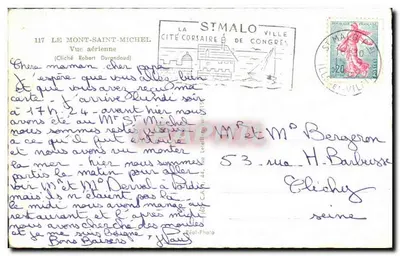 117 LE MONT-SAINT-MICHEL
Vue aérienne
(Cliché Robert Durandaud)
LA ST MALO VILLE
CITÉ CORSAIRE DE CONGRÈS
ST MALO
ILLE-ET-VILAINE
0,20
Chère maman cher papa
J'espère que vous allez bien
et que vous avez reçu ma
carte. J'arrive lundi soir
à 17h 24 avant hier nous
avons été au Mt St Michel
nous sommes resté
a ce qu'il fut
et nous avons vu monter
la mer - hier nous sommes
partis le matin pour aller
voir Mr et Me Derval à
mais ils n'étaient pas là
le midi nous avons mangé au
restaurant et l'après midi
nous avons cherché des moules
et je me suis baignée
Bons Baisers
Mr et Me Bergeron
53 rue H. Barbusse
Clichy
Seine